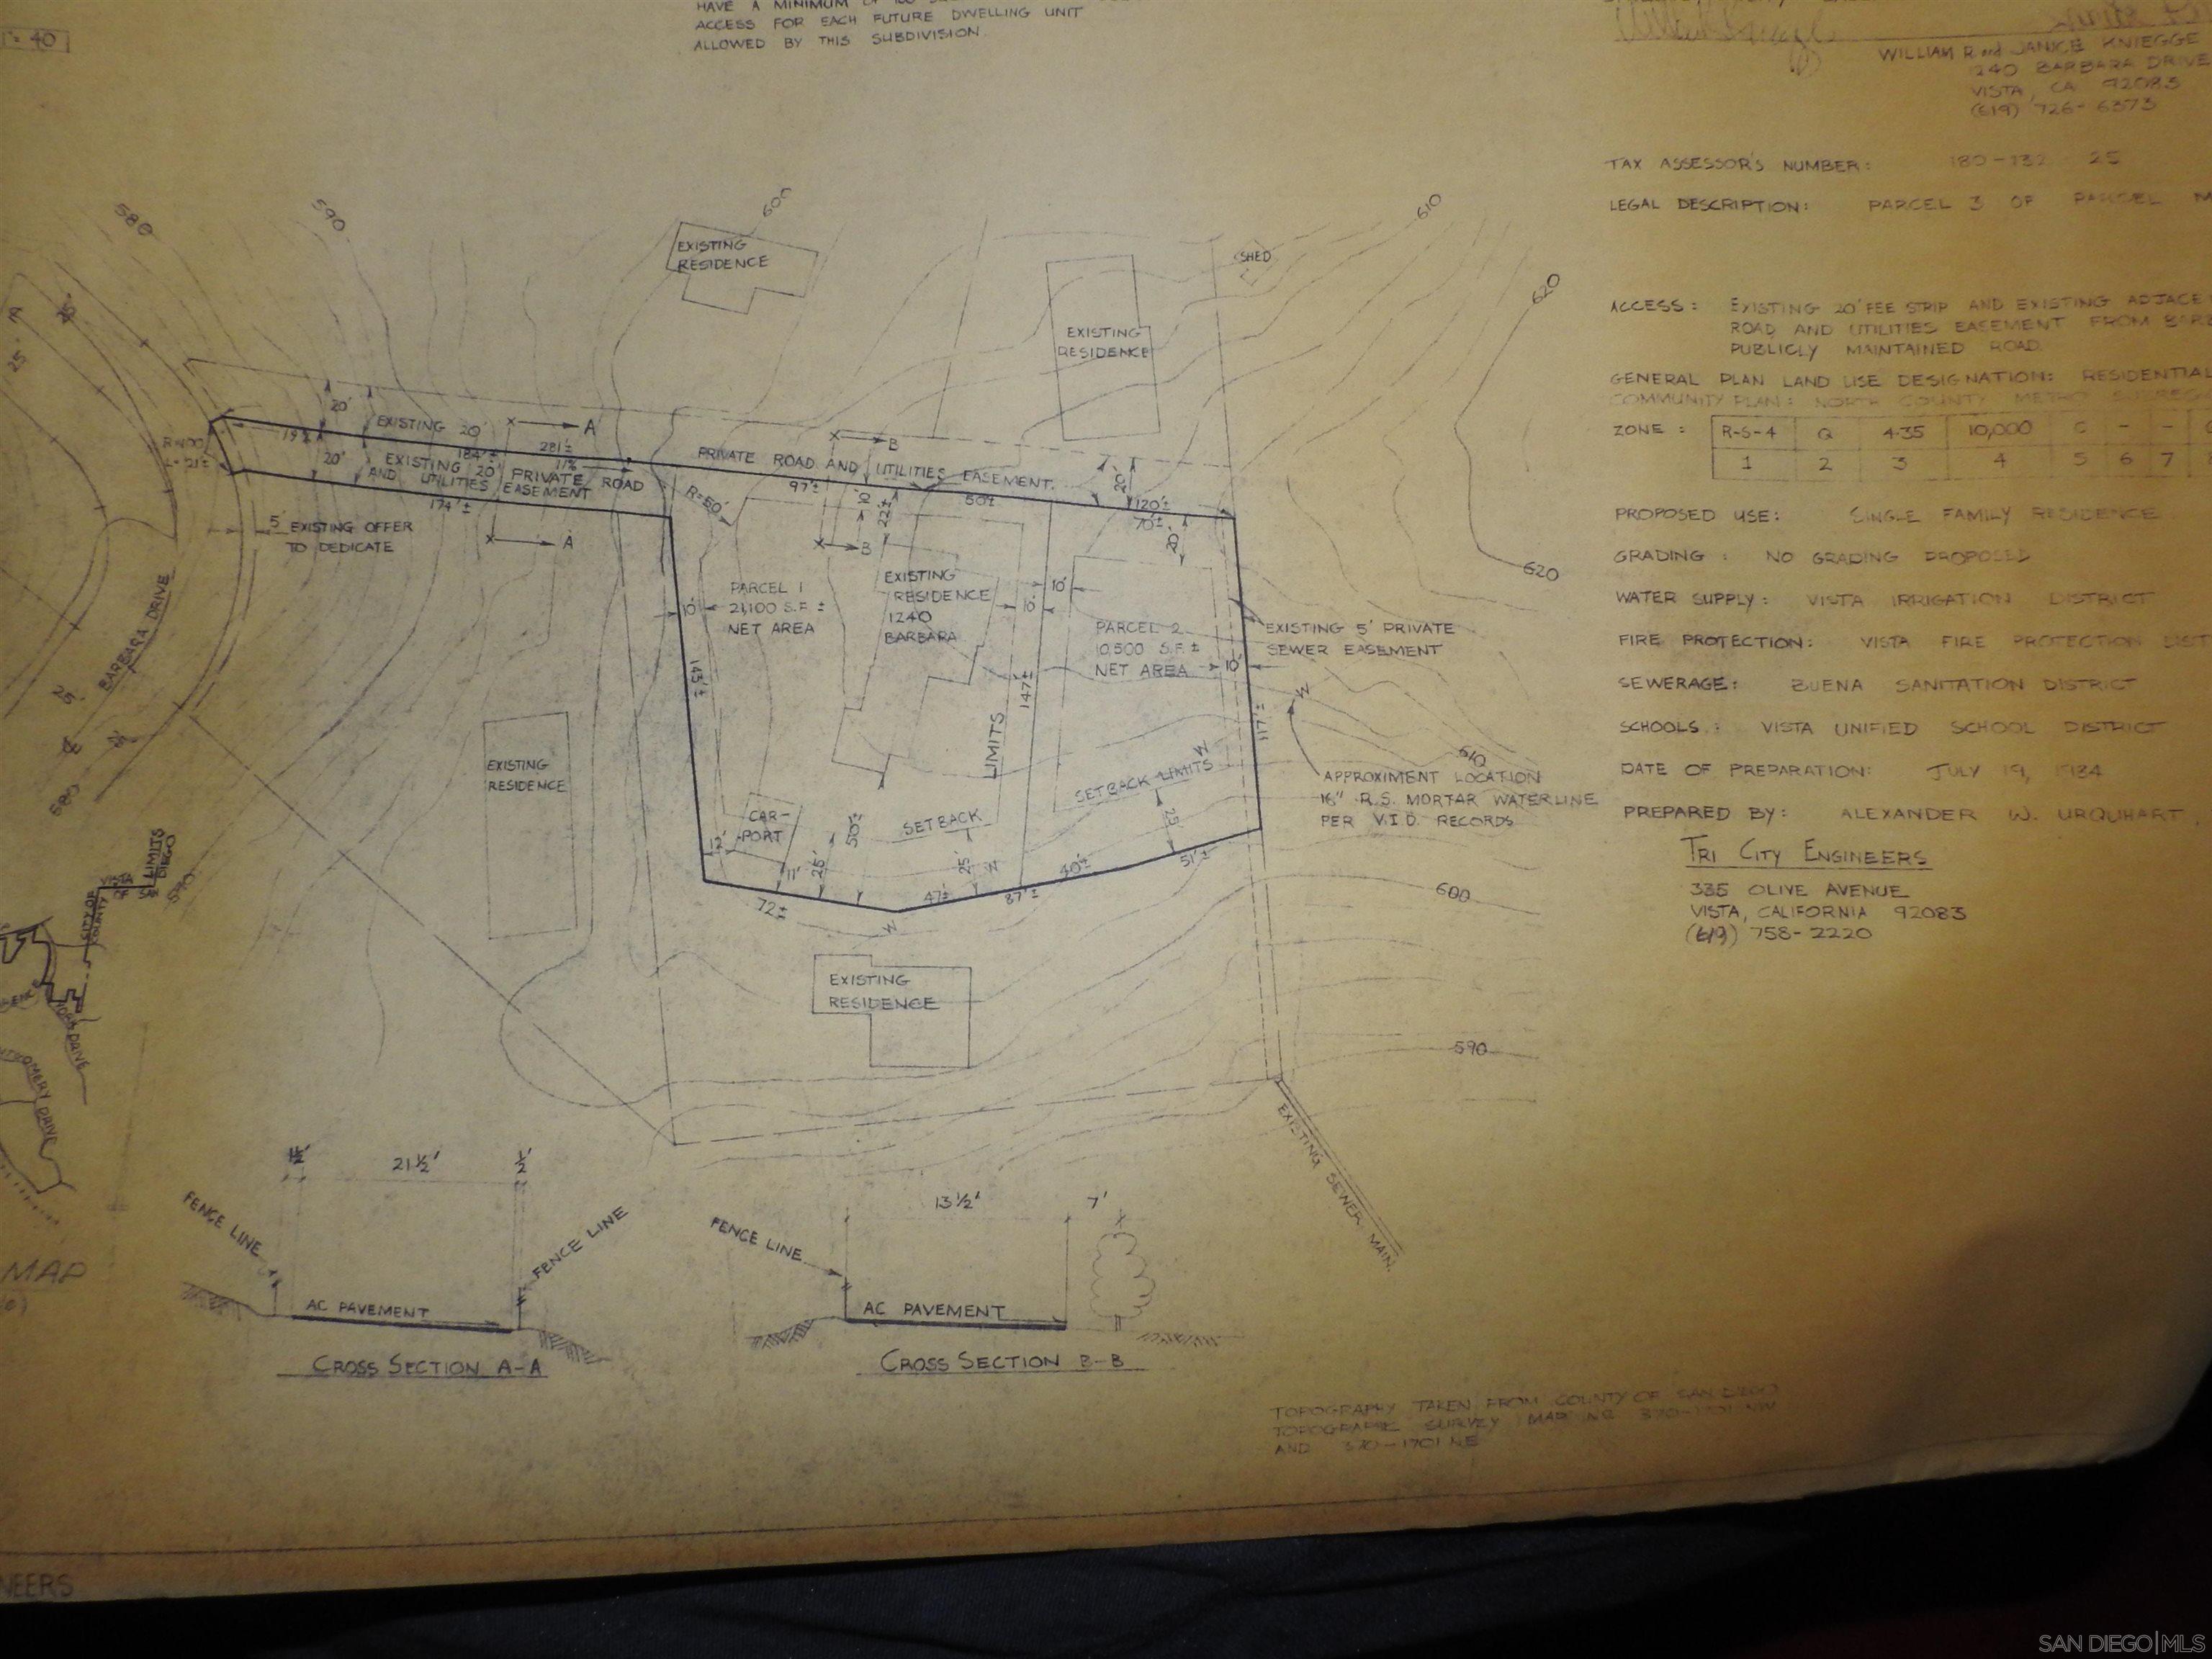 1"= 40'
HAVE A MINIMUM OF 100
ACCESS FOR EACH FUTURE DWELLING UNIT
ALLOWED BY THIS SUBDIVISION
WILLIAM R. and JANICE KNIEGGE
1240 BARBARA DRIVE
VISTA, CA 92083
(619) 726-6373
TAX ASSESSOR'S NUMBER: 180-132 25
LEGAL DESCRIPTION: PARCEL 3 OF PARCEL M
ACCESS: EXISTING 20' FEE STRIP AND EXISTING ADJACE
ROAD AND UTILITIES EASEMENT FROM BARB
PUBLICLY MAINTAINED ROAD.
GENERAL PLAN LAND USE DESIGNATION: RESIDENTIAL
COMMUNITY PLAN: NORTH COUNTY METRO SUBREG
ZONE: R-S-4 Q 4.35 10,000 C - -
1 2 3 4 5 6 7 8
PROPOSED USE: SINGLE FAMILY RESIDENCE
GRADING: NO GRADING PROPOSED
WATER SUPPLY: VISTA IRRIGATION DISTRICT
FIRE PROTECTION: VISTA FIRE PROTECTION DIST
SEWERAGE: BUENA SANITATION DISTRICT
SCHOOLS: VISTA UNIFIED SCHOOL DISTRICT
DATE OF PREPARATION: JULY 19, 1984
PREPARED BY: ALEXANDER W. URQUHART,
TRI CITY ENGINEERS
335 OLIVE AVENUE
VISTA, CALIFORNIA 92083
(619) 758-2220
580
590
600
610
620
620
610
600
590
580
590
EXISTING
RESIDENCE
EXISTING
RESIDENCE
SHED
20'
EXISTING 20'
A
19'±
184'±
281'±
11%
20'
EXISTING 20' PRIVATE ROAD
AND UTILITIES EASEMENT
174'±
R=100'
L=21'±
PRIVATE ROAD AND UTILITIES EASEMENT
B
R=50'
97'±
22'±
50'±
20'
120'±
70'±
20'
5' EXISTING OFFER
TO DEDICATE
A
B
BARBARA DRIVE
25'
25'
PARCEL 1
21,100 S.F. ±
NET AREA
10'
EXISTING
RESIDENCE
1240
BARBARA
10'
10'
PARCEL 2
10,500 S.F. ±
NET AREA
10'
EXISTING 5' PRIVATE
SEWER EASEMENT
145'±
147'±
117'±
W
W
LIMITS
SETBACK
SETBACK LIMITS
APPROXIMENT LOCATION
16" R.S. MORTAR WATERLINE
PER V.I.D. RECORDS
EXISTING
RESIDENCE
CAR-
PORT
12'
11'
25'
50'±
25'
W
25'
72'±
47'±
87'±
40'±
51'±
W
EXISTING
RESIDENCE
EXISTING SEWER MAIN
CITY OF VISTA LIMITS
COUNTY OF SAN DIEGO
DRIVE
MAP
21 ½'
½'
FENCE LINE
FENCE LINE
AC PAVEMENT
CROSS SECTION A-A
13 ½'
7'
FENCE LINE
AC PAVEMENT
CROSS SECTION B-B
TOPOGRAPHY TAKEN FROM COUNTY OF SAN DIEGO
TOPOGRAPHIC SURVEY MAP NO. 370-1701 NW
AND 370-1701 NE
NEERS
SAN DIEGO|MLS